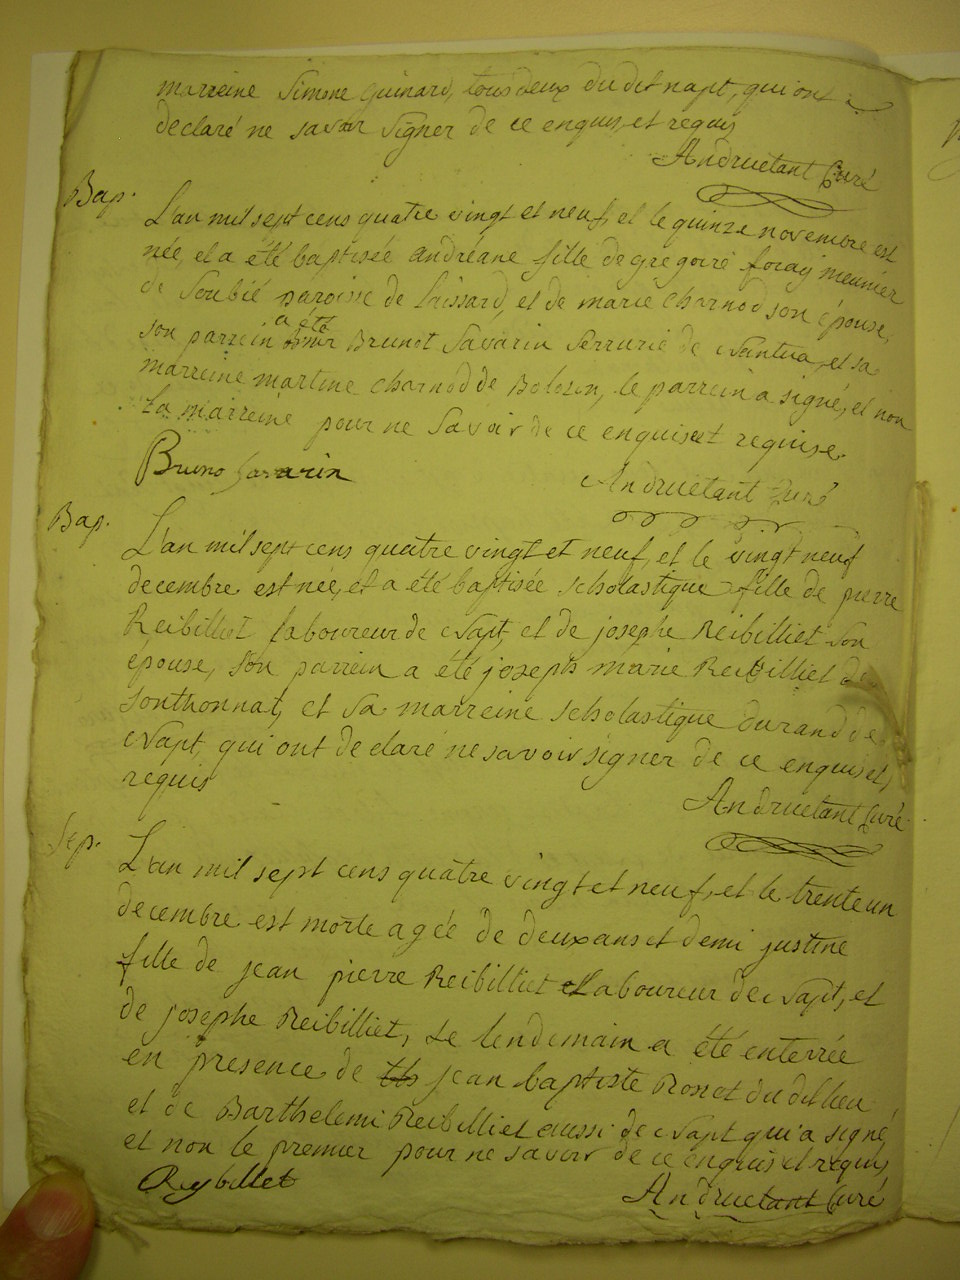 marreine Simone Guinard, tous deux du dit napt, qui ont
declaré ne savoir signer de ce enquis, et requis
Andruetant Curé
Bap.
L'an mil sept cens quatre vingt et neuf, et le quinze novembre est
née, et a été baptisée andréane fille de gregoire foray meunier
de Soubié paroisse de Leissard, et de marie Charnod son épouse,
son parrein a été Brunot Savarin Serrurié de Nantua, et sa
marreine martine Charnod de Bolozon, le parrein a signé, et non
La marreine pour ne Savoir de ce enquise et requise.
Bruno Savarin
Andruetant Curé
Bap.
L'an mil sept cens quatre vingt et neuf, et le vingt neuf
decembre est née, et a été baptisée scholastique fille de pierre
Reibilliet laboureur de Napt, et de josephe Reibilliet son
épouse, son parrein a été joseph marie Reibilliet de
Sonthonnat, et sa marreine scholastique durand de
Napt, qui ont declaré ne savoir signer de ce enquis et
requis
Andruetant Curé
Sep.
L'an mil sept cens quatre vingt et neuf, et le trente un
decembre est morte agée de deux ans et demi justine
fille de jean pierre Reibilliet laboureur de Napt, et
de josephe Reibilliet, Le lendemain a été enterrée
en presence de jean baptiste Rosset du dit lieu
et de Barthelemi Reibilliet aussi de Napt qui a signé
et non le premier pour ne savoir de ce enquis et requis
Reybillet
Andruetant Curé